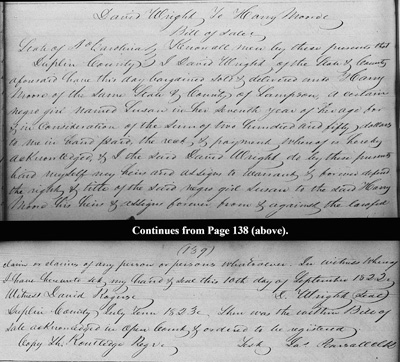 David Wright To Harry Moore
Bill of Sale
State of No Carolina } Know all men by these presents that
Duplin County } I David Wright of the State & County
aforesaid have this day bargained Sold & delivered unto Harry
Moore of the Same State & County of Sampson, a certain
negro girl named Susan in her seventh year of her age for
& in Consideration of the Sum of two hundred and fifty dollars
to me in hand paid, the rect. & payment whereof is hereby
acknowledged, & I the said David Wright do by these presents
bind myself my heirs and assigns to Warrant & forever defend
the right & title of the said negro girl Susan to the said Harry
Moore his heirs & assigns forever from & against the lawful
Continues from Page 138 (above).
(139)
claim or claims of any person or persons whatsoever. In witness whereof
I have hereunto set my hand & seal this 10th day of September 1822.
Witness David D. Wright (Seal)
Duplin County July Term 1823. Then was the within Bill of
Sale acknowledged in Open Court & ordered to be registered
Copy Routledge Regr. Test Jas Pearsall Clk